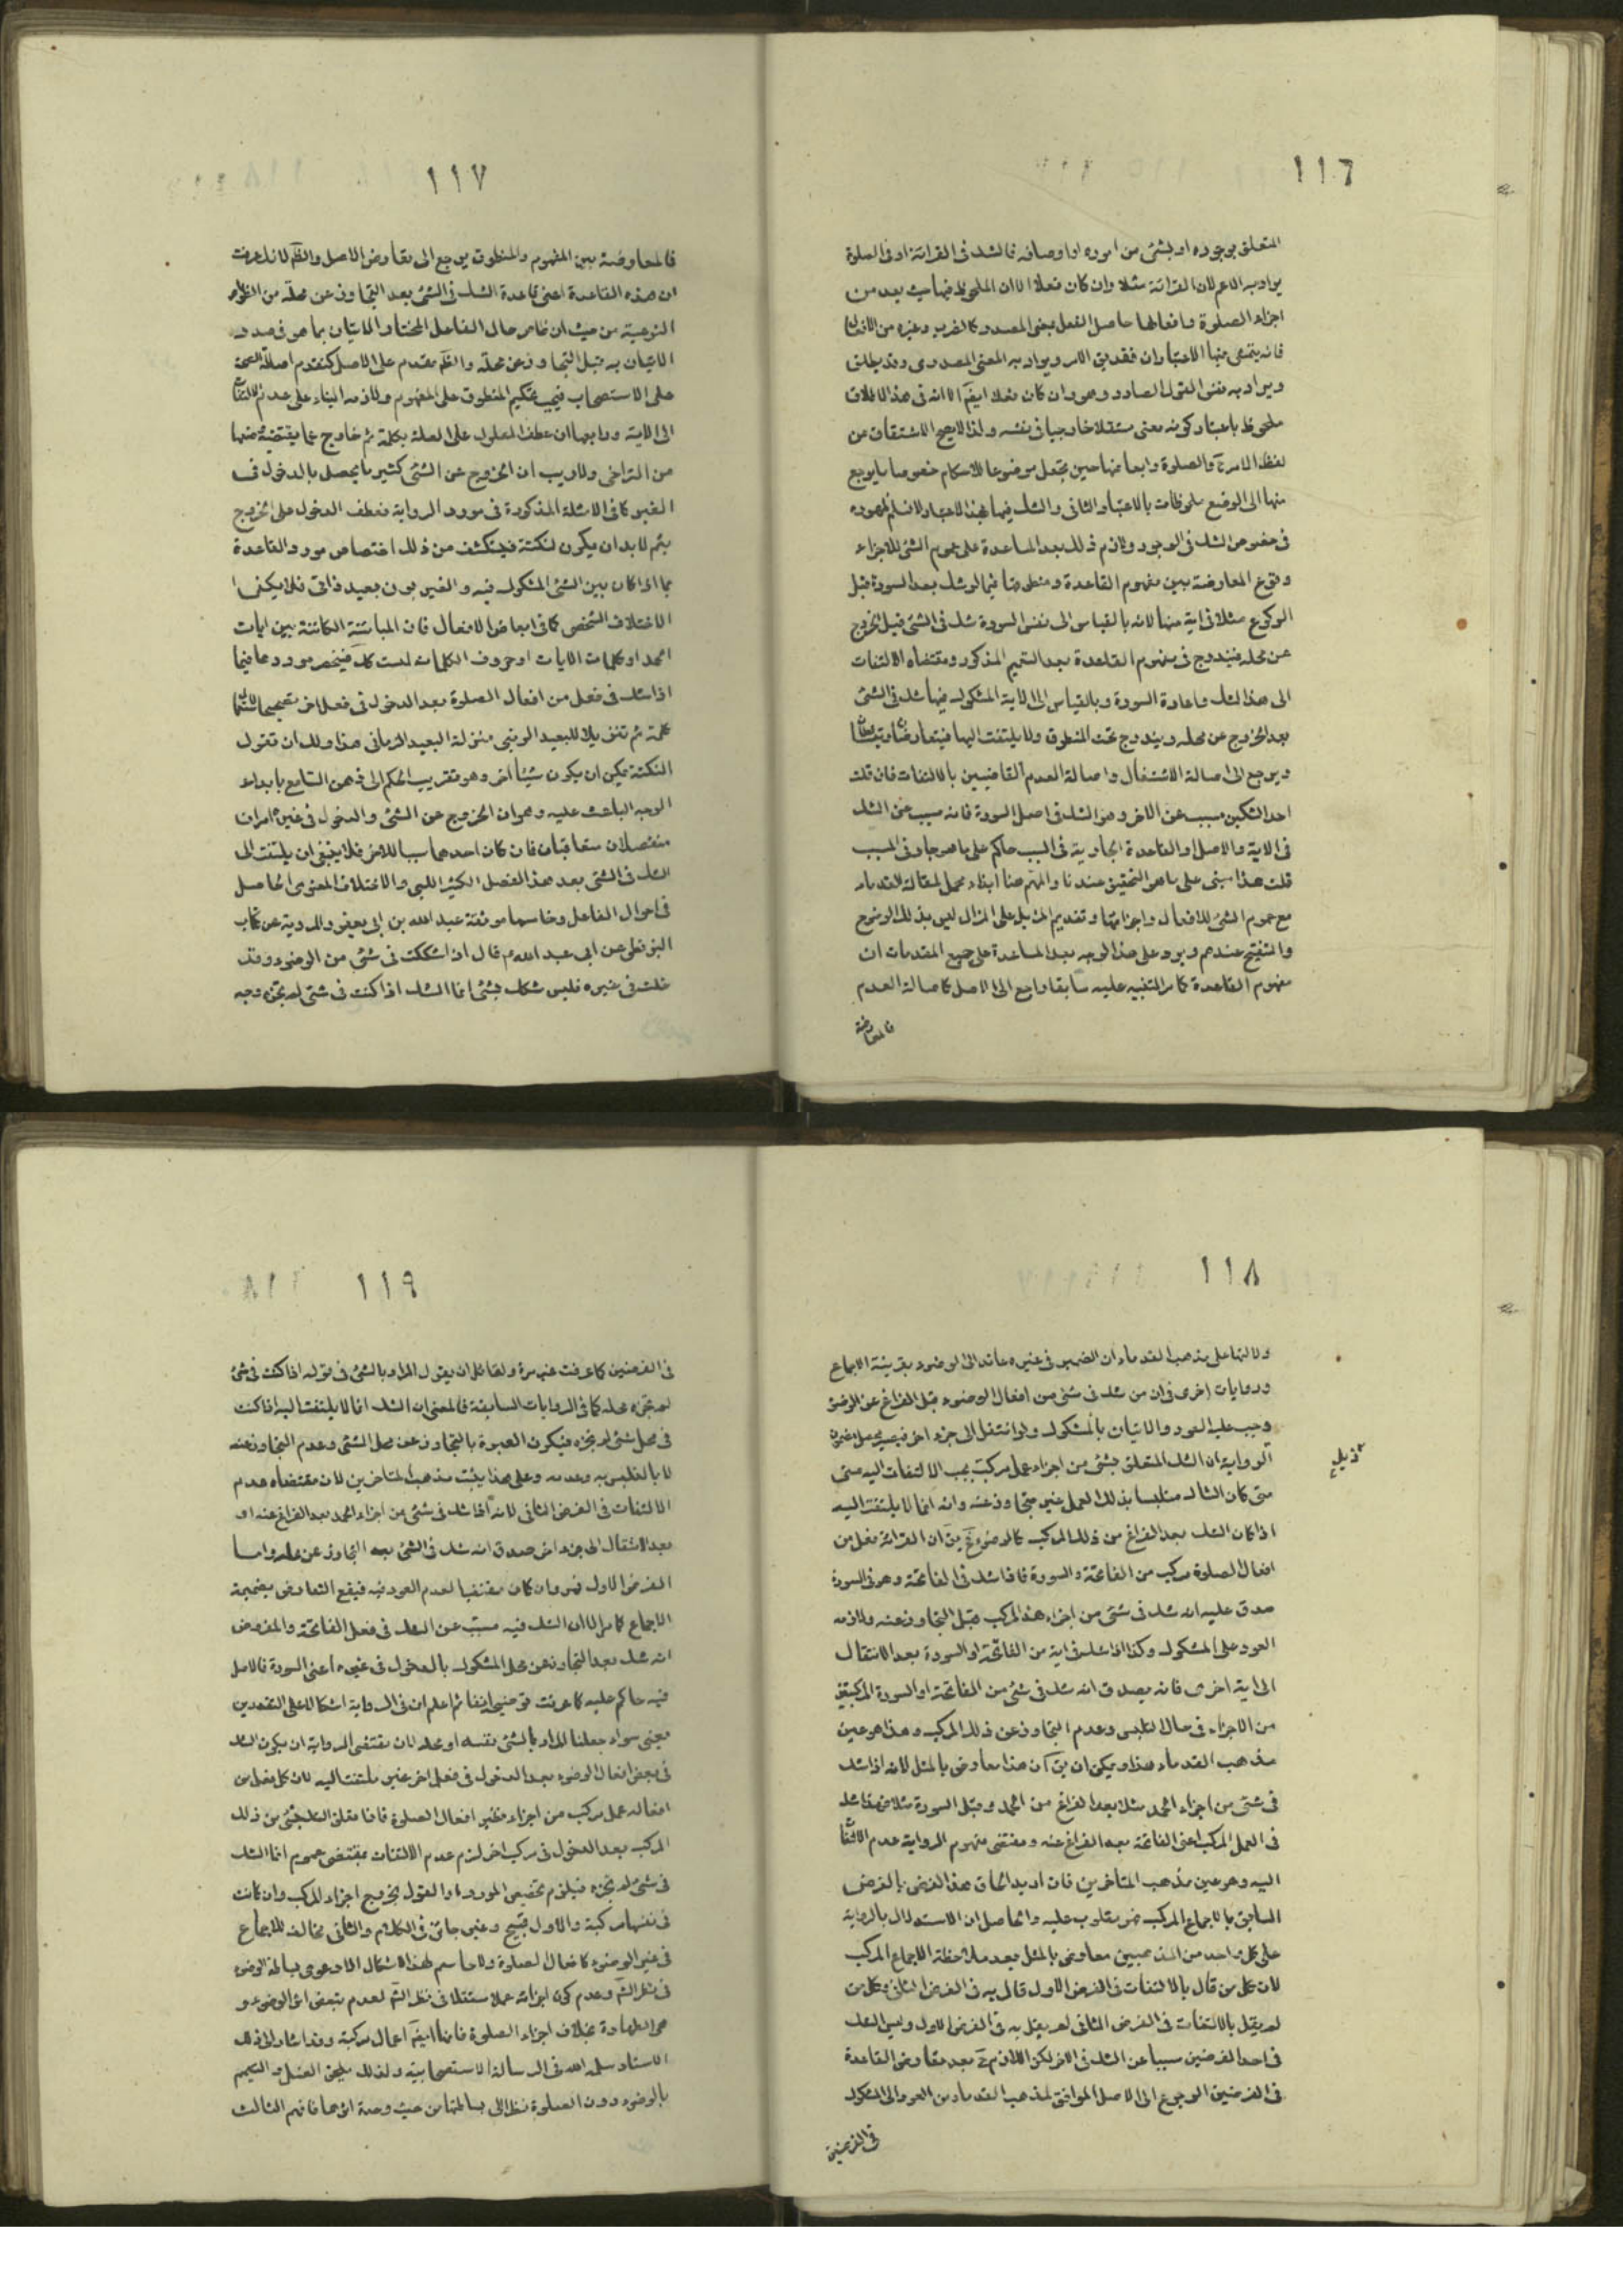 ١١٦
المتعلق بوجوده او بشئ من اموره او اوصافه فالشك فى القرائة او فى الصلوة
يراد به الاعم لان القرائة مثلا وان كان فعلا الا ان الملحوظ فيها حيث يعد من
اجزاء الصلوة وافعالها حاصل الفعل بمعنى المصدر كالضرب وغيره من الافعال
فانه يتمشى فيها الاعتباران فقد يق الامر ويراد به المعنى المصدرى وقد يطلق
ويراد به نفس القول الصادر وهو وان كان فعلا ايضا الا انه فى هذا الاطلاق
ملحوظ باعتبار كونه معنى مستقلا خارجيا فى نفسه ولذا لا يصح الاشتقاق من
لفظ الامر والصلوة وابعاضها حين تجعل موضوعا للاحكام خصوصا ما يرجع
منها الى الوضع ملحوظات بالاعتبار الثانى والشك فيها بهذا الاعتبار
فى خصوص الشك فى الوجود ولازم ذلك بعد المساعدة على عموم الشئ للاجزاء
وقوع المعارضة بين مفهوم القاعدة ومنطوقها فيما لو شك بعد السورة قبل
الركوع مثلا فى اية منها لانه بالقياس الى نفس السورة شك فى الشئ قبل الخروج
عن محله فيندرج فى مفهوم القاعدة بعد التتميم المذكور ومقتضاه الالتفات
الى هذا الشك واعادة السورة وبالقياس الى الاية المشكوك فيها شك فى الشئ
بعد الخروج عن محله ويندرج تحت المنطوق ولا يلتفت اليها فيتعارضان ويتساقطان
ويرجع الى اصالة الاشتغال واصالة العدم القاضيين بالالتفات فان قلت
احد الشكين مسبب عن الاخر وهو الشك فى اصل السورة فانه مسبب عن الشك
فى الاية والاصل او القاعدة الجارية فى السبب حاكم على ما هو جار فى المسبب
قلت هذا مبنى على ما هو التحقيق عندنا والمهم هنا ابداء محمل لمقالة القدماء
مع عموم الشئ للافعال واجزائها وتقديم المزيل على المزال ليس بذلك الوضوح
والتنقيح عندهم ويرد على هذا الوجه بعد المساعدة على جميع المقدمات ان
مفهوم القاعدة كما مر التنبيه عليه سابقا راجع الى الاصل كاصالة العدم
فالمعارضة
١١٧
فالمعارضة بين المفهوم والمنطوق يرجع الى تعارض الاصل والظم لانك عرفت
ان هذه القاعدة اعنى قاعدة الشك فى الشئ بعد التجاوز عن محله من الظواهر
النوعية من حيث ان ظاهر حال الفاعل المختار الاتيان بما هو فى صدد
الاتيان به قبل التجاوز عن محله والظم مقدم على الاصل كتقدم اصالة الصحة
على الاستصحاب فيجب تحكيم المنطوق على المفهوم ولازمه البناء على عدم الالتفات
الى الاية ورابعها ان عطف المعلول على العلة بكلمة ثم خارج عما يقتضيه منها
من التراخى ولا ريب ان الخروج عن الشئ كثير ما يحصل بالدخول فى
الغير كما فى الامثلة المذكورة فى مورد الرواية فعطف الدخول على الخروج
بثم لا بد ان يكون لنكتة فينكشف من ذلك اختصاص مورد القاعدة
بما اذا كان بين الشئ المشكوك فيه والغير بون بعيد ذاتى فلا يكفى
الاختلاف الشخصى كما فى ابعاض الافعال فان المباينة الكائنة بين ايات
الحمد او كلمات الايات او حروف الكلمات ليست كك فينحصر موردها فيما
اذا شك فى فعل من افعال الصلوة بعد الدخول فى فعل اخر تصحيحا لاستعمال
كلمة ثم تنزيلا للبعيد الرتبى منزلة البعيد الزمانى هذا ولك ان تقول
النكتة يمكن ان يكون شيئا اخر وهو تقريب الحكم الى ذهن السامع بابداء
الوجه الباعث عليه وهو ان الخروج عن الشئ والدخول فى غيره امران
منفصلان متعاقبان فان كان احدهما سببا للاخر فلا ينبغى ان يلتفت الى
الشك فى الشئ بعد هذا الفصل الكثير اللبى والاختلاف المعنوى الحاصل
فى احوال الفاعل وخامسها موثقة عبد الله بن ابى يعفور المروية عن كتاب
البزنطى عن ابى عبد الله ع قال اذا شككت فى شئ من الوضوء وقد
دخلت فى غيره فليس شكك بشئ انما الشك اذا كنت فى شئ لم تجزه وجه
١١٨
ودلالتها على مذهب القدماء ان الضمير فى غيره عائد الى الوضوء بقرينة الاجماع
وروايات اخرى فى ان من شك فى شئ من افعال الوضوء قبل الفراغ عن الوضوء
وجب عليه العود والاتيان بالمشكوك ولو انتقل الى جزء اخر
الرواية ان الشك المتعلق بشئ من اجزاء عمل مركب يجب الالتفات اليه متى
متى كان الشاك متلبسا بذلك العمل غير متجاوز عنه وانه انما لا يلتفت اليه
ذيل
اذا كان الشك بعد الفراغ من ذلك المركب كالوضوء ثم يق ان القرائة فعل من
افعال الصلوة مركب من الفاتحة والسورة فاذا شك فى الفاتحة وهو فى السورة
صدق عليه انه شك فى شئ من اجزاء هذا المركب قبل التجاوز عنه ولازمه
العود على المشكوك وكذا اذا شك فى اية من الفاتحة او السورة بعد الانتقال
الى اية اخرى فانه يصدق انه شك فى شئ من الفاتحة او السورة المركبتين
من الاجزاء فى حال التلبس وعدم التجاوز عن ذلك المركب وهذا هو عين
مذهب القدماء هذا ويمكن ان يق ان هذا معارض بالمثل لانه اذا شك
فى شئ من اجزاء الحمد مثلا بعد الفراغ من الحمد وقبل السورة مثلا فهذا شك
فى العمل المركب اعنى الفاتحة بعد الفراغ عنه ومقتضى مفهوم الرواية عدم الالتفات
اليه وهو عين مذهب المتأخرين فان اريد الحاق هذا الفرض بالفرض
السابق بالاجماع المركب فهو مقلوب عليه والحاصل ان الاستدلال بالرواية
على كل واحد من المذهبين معارض بالمثل بعد ملاحظة الاجماع المركب
لان كل من قال بالالتفات فى الفرض الاول قال به فى الفرض الثانى وكل من
لم يقل بالالتفات فى الفرض الثانى لم يقل به فى الفرض الاول وليس الشك
فى احد الفرضين سببا عن الشك فى الاخر لكن اللازم ح بعد تعارض القاعدة
فى الفرضين الرجوع الى الاصل الموافق لمذهب القدماء من العود الى المشكوك
فى الفرضين
١١٩
فى الفرضين كما عرفت غير مرة ولقائل ان يقول المراد بالشئ فى قوله اذا كنت فى شئ
لم تجزه محله كما فى الروايات السابقة فالمعنى ان الشك انما لا يلتفت اليه اذا كنت
فى محل شئ لم تجزه فيكون العبرة بالتجاوز عن محل الشئ وعدم التجاوز عنه
لا بالتلبس به وعدمه وعلى هذا يثبت مذهب المتاخرين لان مقتضاه عدم
الالتفات فى الفرض الثانى لانه اذا شك فى شئ من اجزاء الحمد بعد الفراغ عنه او
بعد الانتقال الى جزء اخر صدق انه شك فى الشئ بعد التجاوز عن محله واما
الفرض الاول فهو وان كان مقتضيا لعدم العود فيه فيقع التعارض بضميمة
الاجماع كما مر الا ان الشك فيه مسبب عن الشك فى فعل الفاتحة والمفروض
انه شك بعد التجاوز عن محل المشكوك بالدخول فى غيره اعنى السورة فالاصل
فيه حاكم عليه كما عرفت توضيحه انفا ثم اعلم ان فى الرواية اشكالا على التقديرين
يعنى سواء جعلنا المراد بالشئ نفسه او محله لان مقتضى الرواية ان يكون الشك
فى بعض افعال الوضوء بعد الدخول فى فعل اخر غير ملتفت اليه لان كل فعل من
افعاله عمل مركب من اجزاء نظير افعال الصلوة فاذا تعلق الشك بشئ من ذلك
المركب بعد الدخول فى مركب اخر لزم عدم الالتفات بمقتضى عموم انما الشك
فى شئ لم تجزه فيلزم تخصيص المورد او القول بخروج اجزاء المركب وان كانت
فى نفسها مركبة والاول قبيح وغير جائز فى الكلام والثانى مخالف للاجماع
فى غير الوضوء كافعال الصلوة ولا حاسم لهذا الاشكال الا دعوى بساطة الوضوء
فى نظر الشم وعدم كون اجزائه عملا مستقلا فى نظر الشم لعدم تبعض اثر الوضوء و
هو الطهارة بخلاف اجزاء الصلوة فانها ايضا اعمال مركبة وقد اشار الى ذلك
الاستاد سلمه الله فى الرسالة الاستصحابية ولذلك يلحق الغسل والتيمم
بالوضوء دون الصلوة نظرا الى بساطتها من حيث وحدة اثرها فافهم الثالث